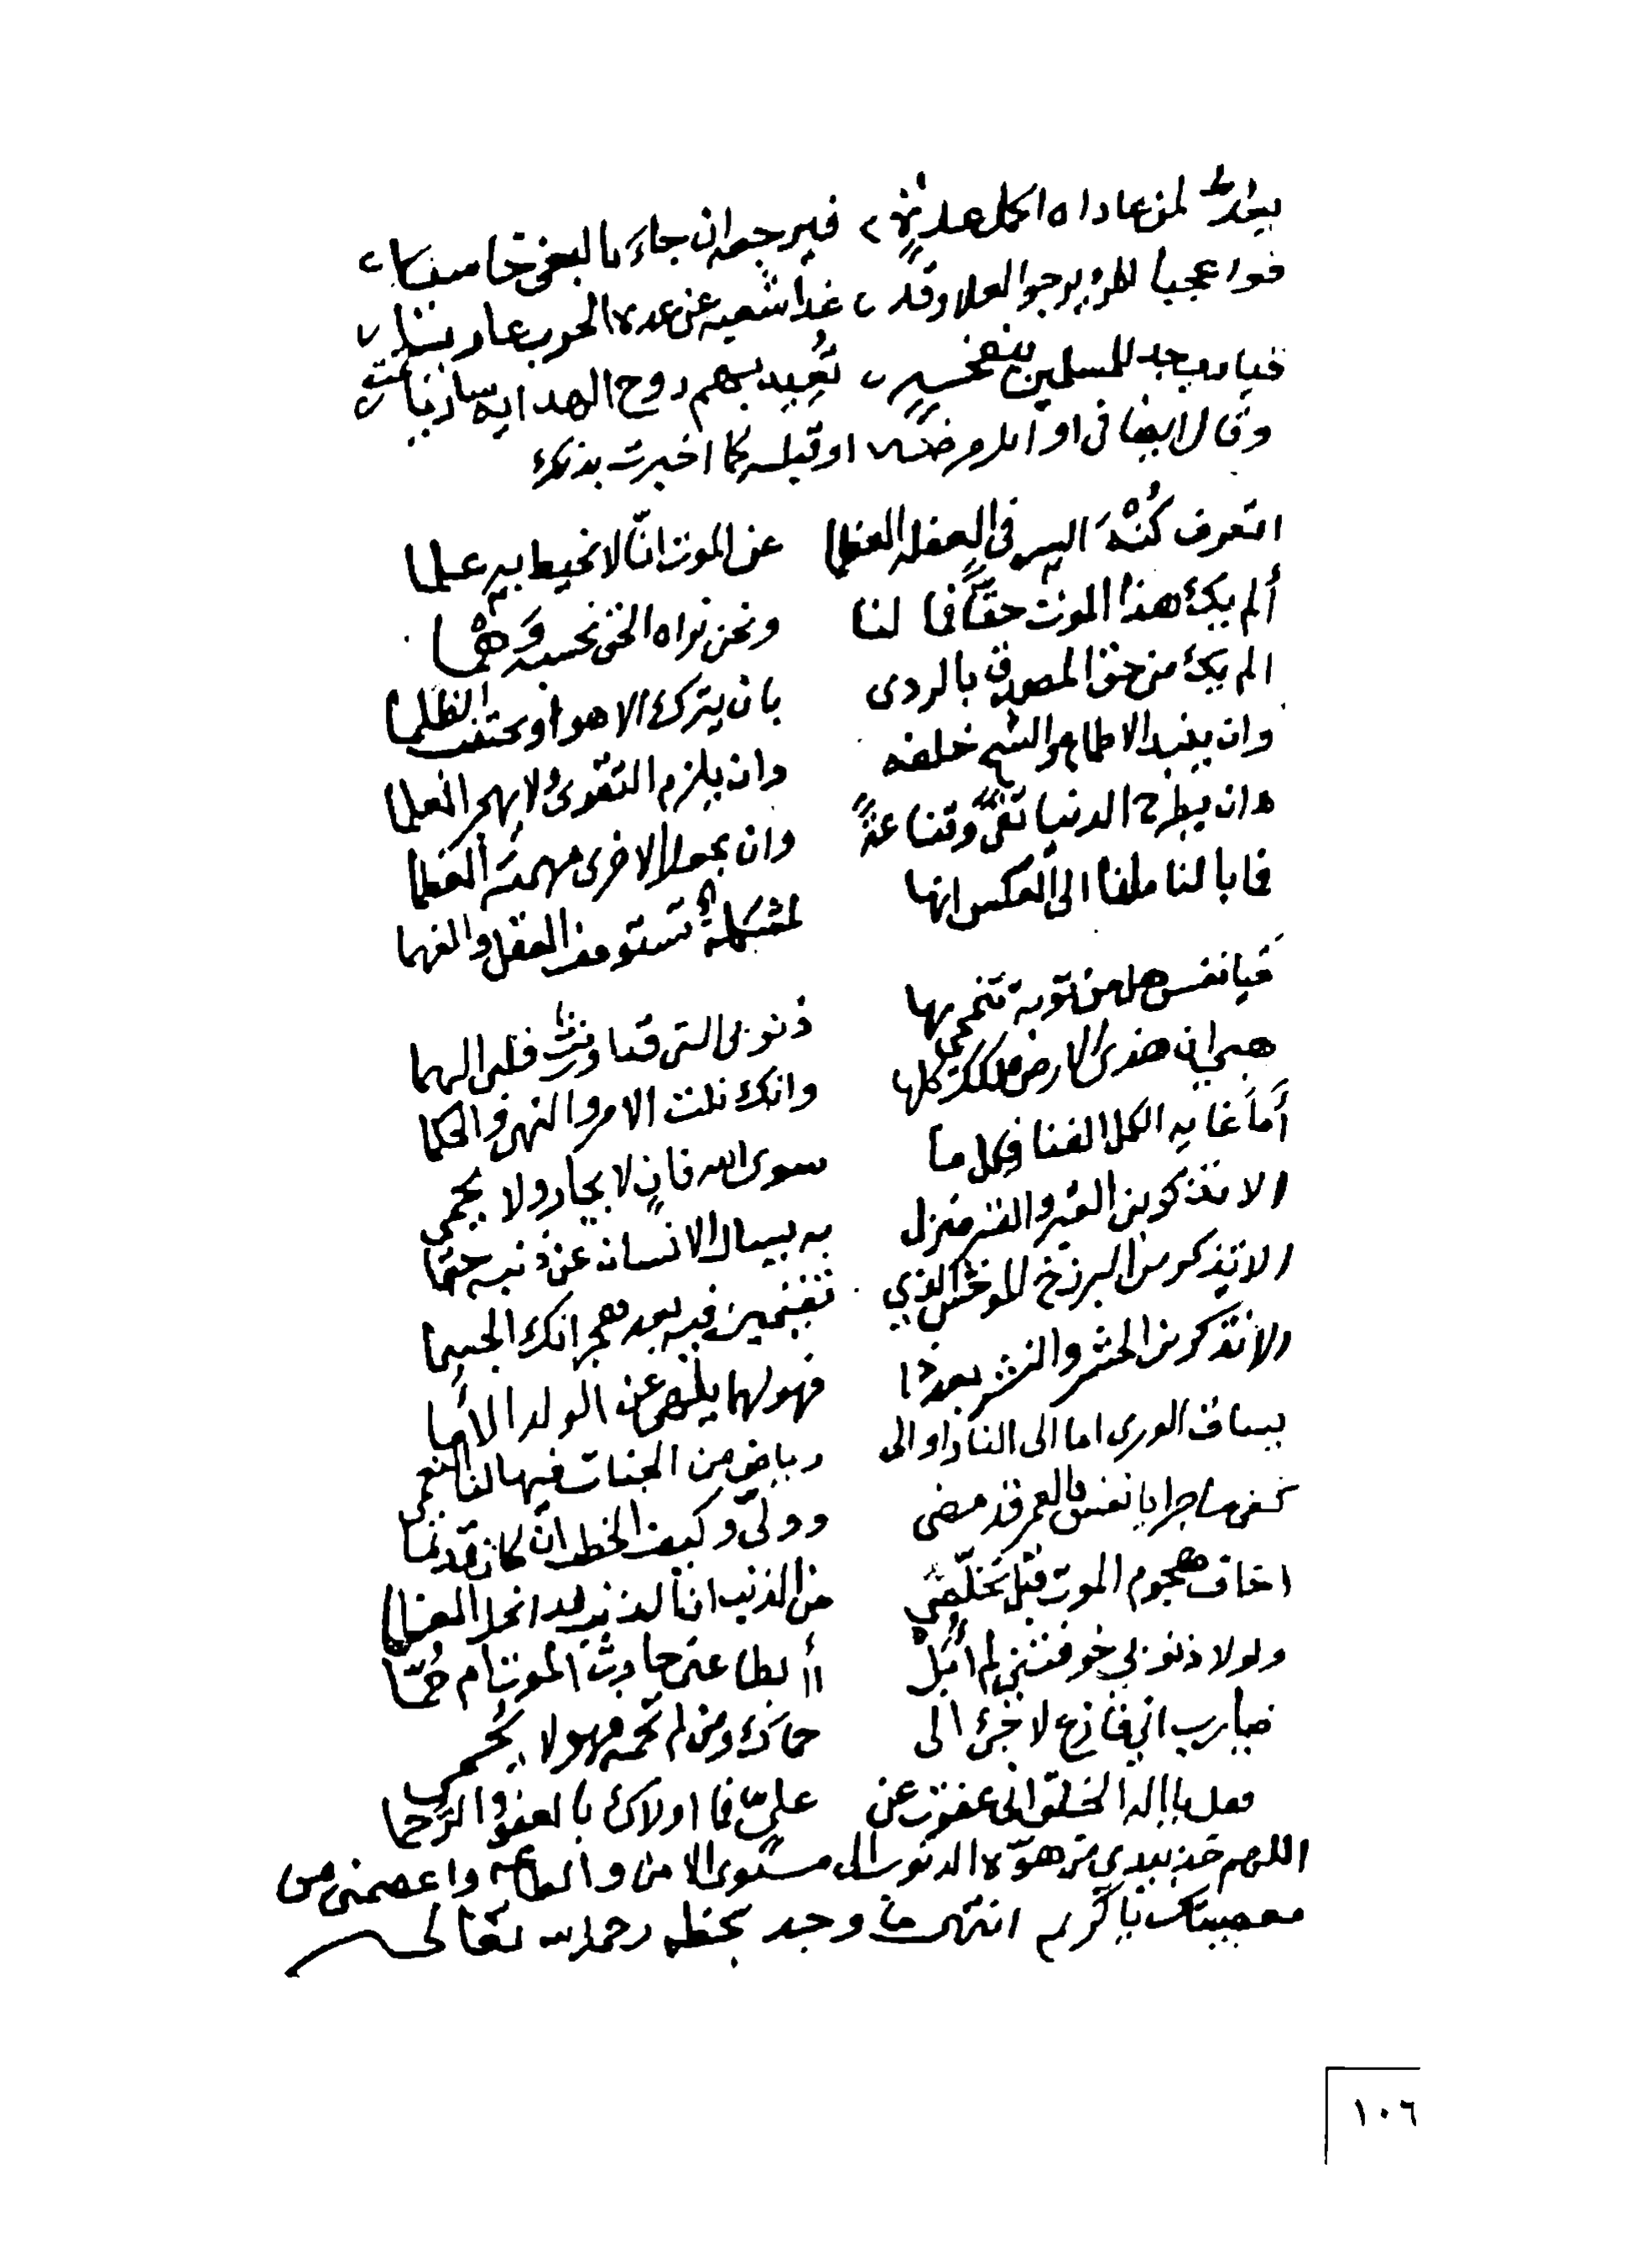 يعد لمن عاداه اكمل عدة فيرجع ان جاء بالبغي خاسئا
فواعجبا للمرء يرجو العلا وقد غدا شعبه عن عدة الحرب عاريا
فيارب جد للمسلمين بنفخة تعيد بهم روح الهداية ساريا تمت
وقال ايضا في اوائل مرضه او قبله كما اخبرت بذلك
اتعرف كُنْهَ السر في الغفلة العظما عن الموت انّا لا نحيط به علما
ألم يك هذا الموت حقاً فما لنا ونحن نراه الحق نحسبه وَهْما
الم يك من حق المصدق بالردى بان يترك الاهوا ويجتنب الظلما
وان ينبذ الاطماع والشح خلفه وان يلزم التقوى لا يهجر العلما
وان يطرح الدنيا تقىً وقناعةً وان يجعل الاخرى مهمته العظما
فما بالنا ملنا الى العكس انها لمشكلة تستوقف العقل والفهما
فيا نفس هل من توبة تنمحي بها ذنوبي التي قد اورثت قلبي الهما
هبي ان هذي الارض ملكك كلها وانك نلت الامر والنهي والحكما
أما غاية الكل الفنا فكل ما سوى الله فانٍ لا يجار ولا يحمى
الا تذكرين القبر والقبر منزل به يسال الانسان عن ذنبه حتما
الا تذكرين البرزخ الموحش الذي تقيمين فيه بعد هجرانك الجسما
الا تذكرين الحشر والنشر بعد ذا فهولهما يلهي عن الولد الأما
يساق الورى اما الى النار او الى رياض من الجنات فيها لنا النعمى
كفى ما جرا يا نفس فالعمر قد مضى وولّى وكيف الخطب ان كان قد تما
اخاف هجوم الموت قبل تخلّصي من الذنب ان الذنب قد انحل العظما
ولولا ذنوبي خوفتني لم أُبَلْ أأبطا عني حادث الموت ام حُمّا
فيارب اني فازع لاجئ الى حماك ومن لم تحمه فهو لا يُحمى
فقل يا إله الخلق اني عفوت عن عليّ فما اولاك بالعفو والرحما
اللهم خذ بيدي من هوّة الذنوب الى مستوى الامن والطاعة واعصمني من
معصيتك يا كريم انتهى ما وجد بخطه رحمه الله تعالى
١٠٦